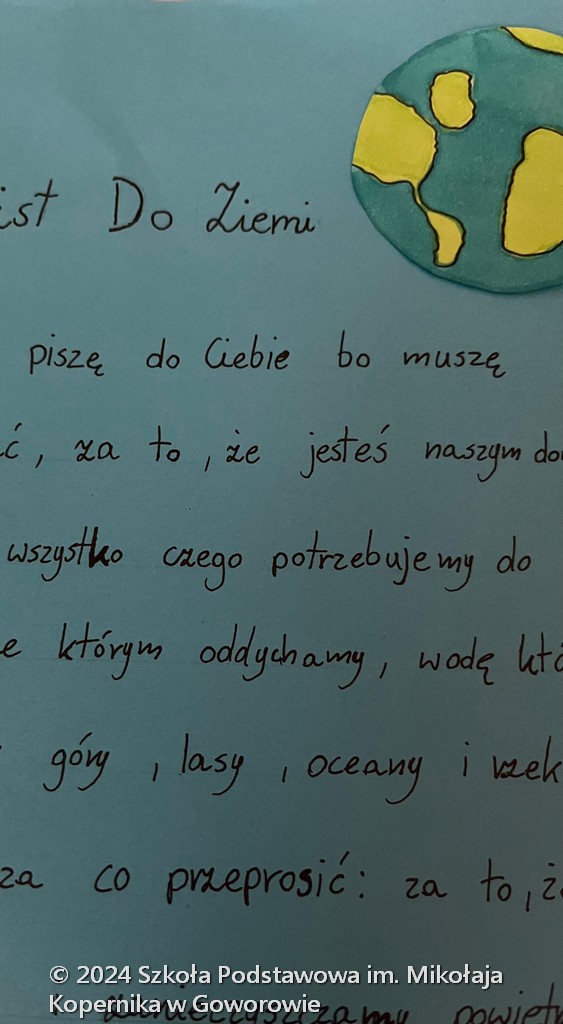 ist Do Ziemi
piszę do Ciebie bo muszę
ć, za to, że jesteś naszym do
wszystko czego potrzebujemy do
e którym oddychamy, wodę któ
góry, lasy, oceany i rzek
za co przeprosić: za to, ż
© 2024 Szkoła Podstawowa im. Mikołaja
Kopernika w Goworowie
zanieczyszczamy powietrz